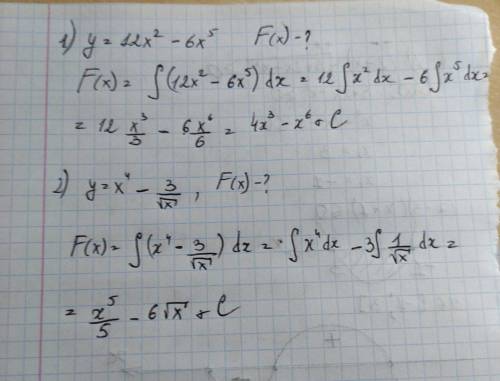 1) y = 12x² - 6x⁵ F(x) - ?
F(x) = ∫(12x² - 6x⁵) dx = 12∫x² dx - 6∫x⁵ dx =
= 12 x³/3 - 6x⁶/6 = 4x³ - x⁶ + C
2) y = x⁴ - 3/√x , F(x) - ?
F(x) = ∫(x⁴ - 3/√x) dx = ∫x⁴ dx - 3∫1/√x dx =
= x⁵/5 - 6√x + C